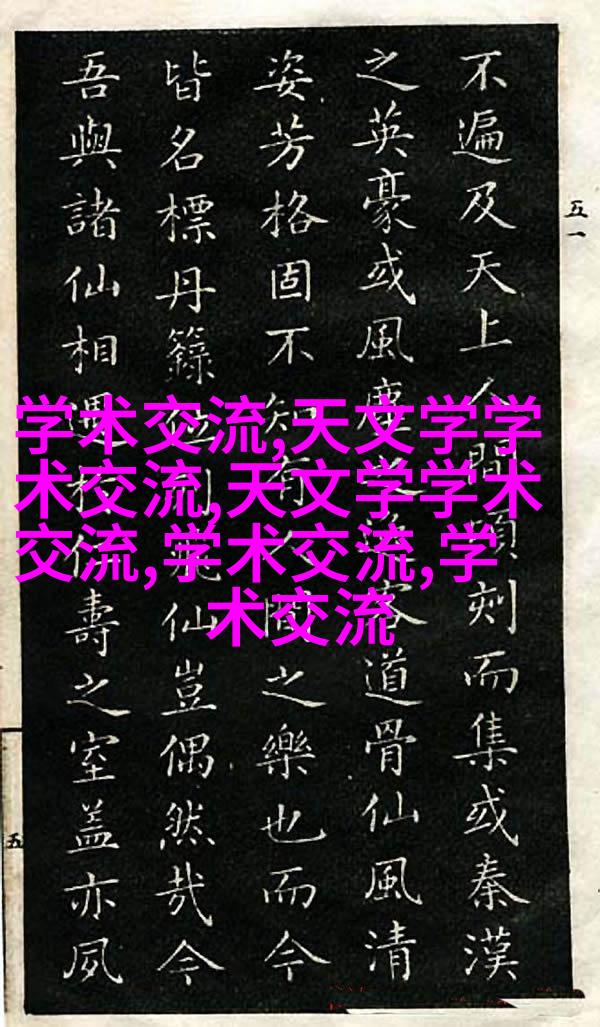 不遍及天上人間頃刻而集或秦漢
之英豪或風塵之客道骨仙風清
姿芳格固不知有人間之樂也而今
皆名標丹籙位列仙豈偶然哉今
吾與諸仙相遇於壽之室蓋亦夙
五一
五
学术交流,天文学学
术交流,天文学学术
交流,学术交流,学
术交流